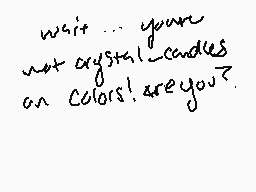 wait ... youre
not crystal_candies
on Colors! are you?